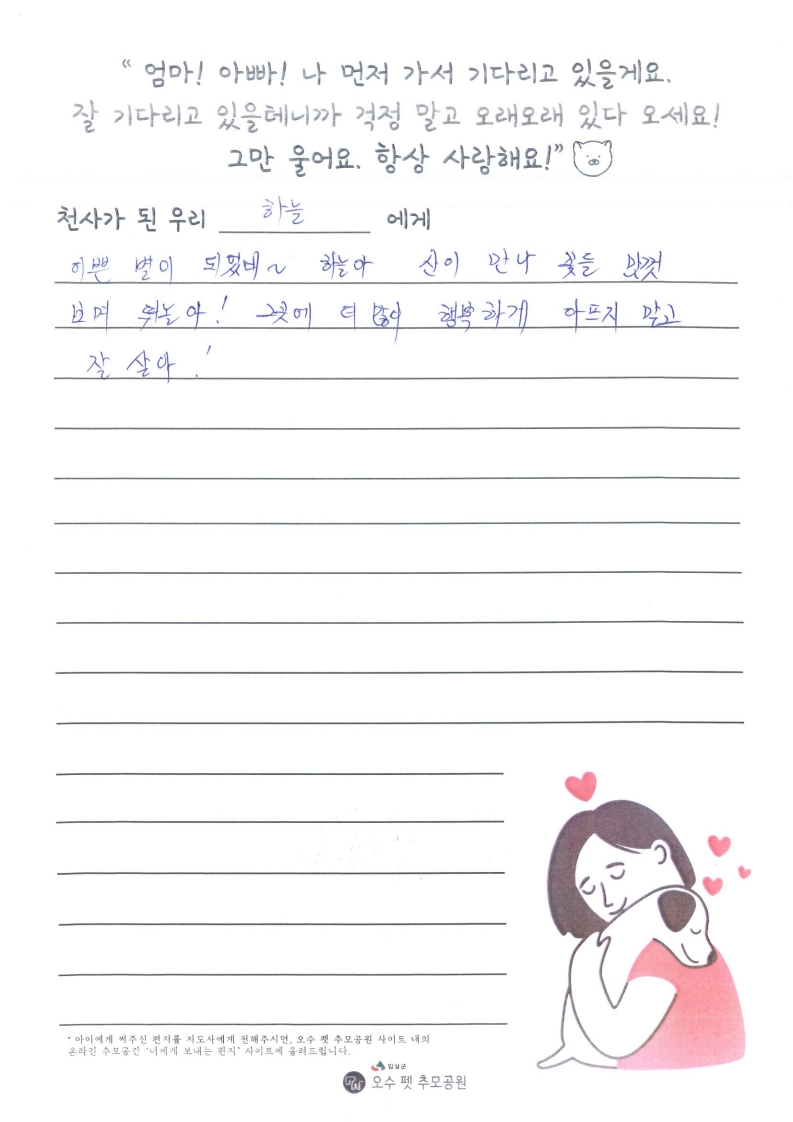 “ 엄마! 아빠! 나 먼저 가서 기다리고 있을게요.
잘 기다리고 있을테니까 걱정 말고 오래오래 있다 오세요!
그만 울어요. 항상 사랑해요!”
천사가 된 우리 하늘 에게
이쁜 별이 되었네~ 하늘아 산이 만나 꽃들 맘껏
보며 뛰놀아! 그곳에 더 많이 행복하게 아프지 말고
잘 살아!
* 아이에게 써주신 편지를 지도사에게 전해주시면, 오수 펫 추모공원 사이트 내의
온라인 추모공간 "너에게 보내는 편지" 사이트에 올려드립니다.
임실군
PW 오수 펫 추모공원